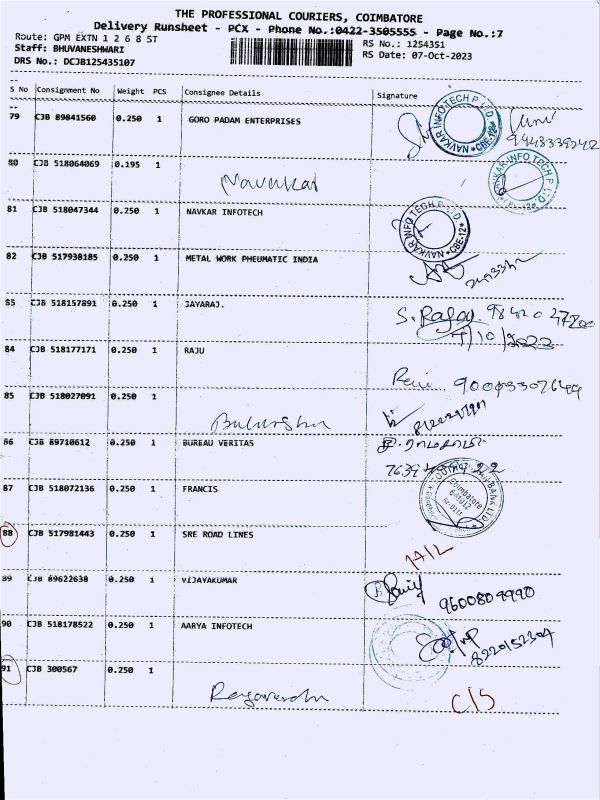 THE PROFESSIONAL COURIERS, COIMBATORE
Delivery Runsheet - PCX - Phone No.:0422-3505555 - Page No.:7
Route: GPM EXTN 1 2 6 8 ST
RS No.: 1254351
Staff: BHUVANESHWARI
RS Date: 07-Oct-2023
DRS No.: DCJB125435107
S No Consignment No Weight PCS Consignee Details Signature
79 CJB 89841560 0.250 1 GORO PADAM ENTERPRISES
NAVKAR INFO TECH P LTD CBE-12
80 CJB 518064069 0.195 1
Navakar
81 CJB 518047344 0.250 1 NAVKAR INFOTECH
NAVKAR INFO TECH P LTD CBE-12
82 CJB 517938185 0.250 1 METAL WORK PHEUMATIC INDIA
83 CJB 518157891 0.250 1 JAYARAJ.
S. Rajaj. 98420 47800
7/10/2023
84 CJB 518177171 0.250 1 RAJU
85 CJB 518027091 0.250 1
86 CJB 89710612 0.250 1 BUREAU VERITAS
87 CJB 518072136 0.250 1 FRANCIS
Coimbatore
88 CJB 517981443 0.250 1 SRE ROAD LINES
89 CJB 89622638 0.250 1 VIJAYAKUMAR
9600809990
90 CJB 518178522 0.250 1 AARYA INFOTECH
8220152304
91 CJB 300567 0.250 1
C/S